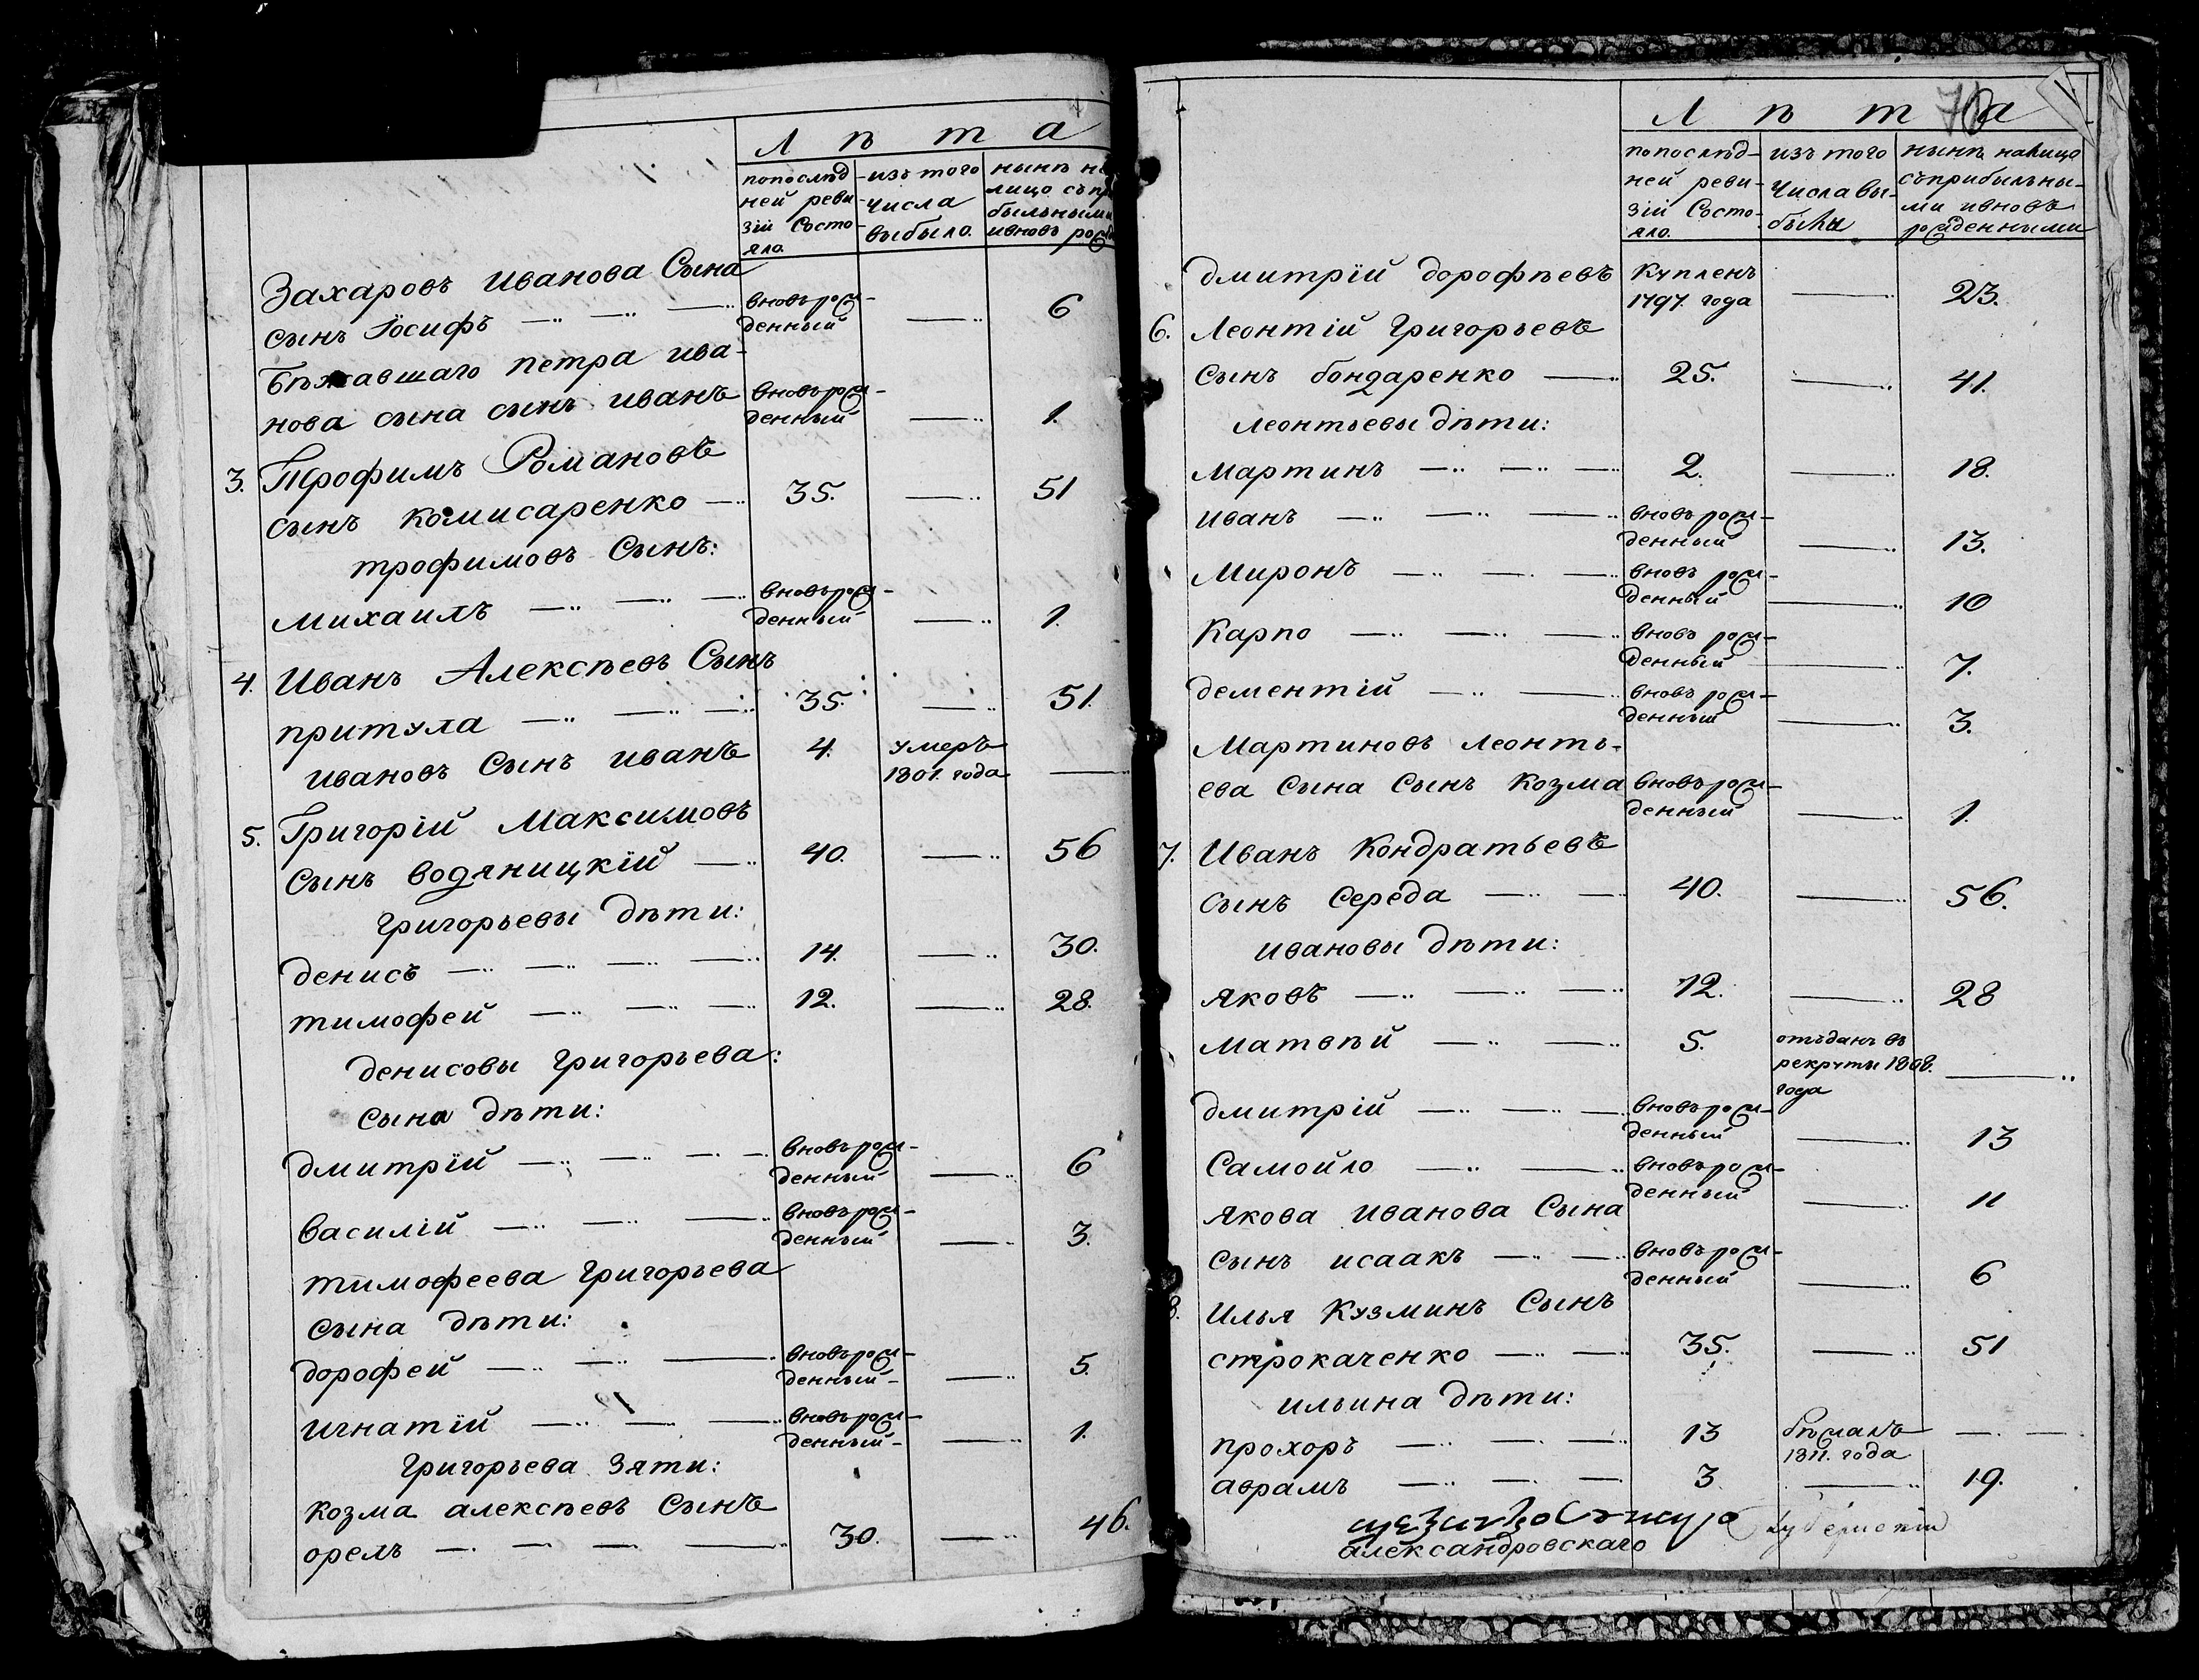 Л ѣ т а
попослѣд-
ней реви-
зіи Состо-
яло.
изъ того
числа
выбыло.
нынѣ на
лицо съпри
быльными
ивновъ рожд
Захаровъ иванова Сына
сынъ Іосифъ — — — вновь рож-
денный — 6
Бѣжавшаго петра ива-
нова сына сынъ иванъ вновь рож-
денный — 1.
3. Трофимъ Романовъ
сынъ комисаренко — 35. — 51
трофимовъ Сынъ:
михаилъ — — — вновь рож-
денный — 1.
4. Иванъ Алексѣевъ Сынъ
притула — — — 35. — 51.
ивановъ Сынъ иванъ 4. умеръ
1801. года —
5. Григорій Максимовъ
Сынъ водяницкій — 40. — 56
григорьевы дѣти:
денисъ — — — — 14. — 30.
тимофей — — — 12. — 28.
денисовы григорьева:
сына дѣти:
дмитрій — — — — вновь рож-
денный — 6
василій — — — вновь рож-
денный — 3.
тимофеева григорьева
сына дѣти:
дорофей — — — вновь рож-
денный — 5.
игнатій — — — вновь рож-
денный — 1.
григорьева зяти:
козма алексѣевъ Сынъ
орелъ — — — — 30. — 46.
76
Л ѣ т а
попослѣд-
ней реви-
зіи Состо-
яло.
изъ того
числа вы-
было
нынѣ налицо
съприбыльны-
ми ивновь
рожденными
дмитрій дорофѣевъ купленъ
1797. года — 23.
6. Леонтій Григорьевъ
Сынъ бондаренко — 25. — 41.
леонтьевы дѣти:
мартинъ — — — 2. — 18.
иванъ — — — вновь рож-
денный — 13.
миронъ — — — вновь рож-
денный — 10
карпо — — — вновь рож-
денный — 7.
дементій — — вновь рож-
денный — 3.
мартиновъ леонть-
ева сына Сынъ козма вновь рож-
денный — 1.
7. Иванъ Кондратьевъ
сынъ середа — — 40. — 56.
ивановы дѣти:
яковъ — — — 12. — 28
матвѣй — — 5. отъданъ въ
рекруты 1808.
года —
дмитрій — — — вновь рож-
денный — 13
самойло — — вновь рож-
денный — 11
якова иванова Сына
сынъ исаакъ — — вновь рож-
денный — 6
8. Илья Кузминъ Сынъ
строкаченко — — 35. — 51
ильина дѣти:
прохоръ — — — 13 бѣжалъ
1811. года — —
аврамъ — — — 3 — 19.
александровскаго
губернскій